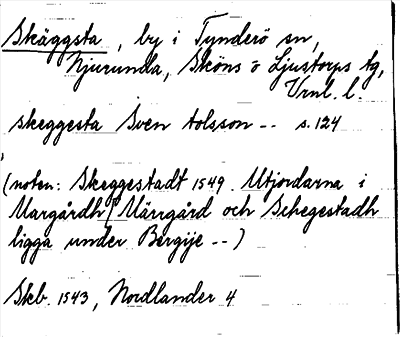 Skäggsta, by i Tynderö sn,
Njurunda, Sköns o Ljustorps tg,
Vrml. l.
skeggesta Sven olsson -- s. 124
(noten: Skeggestadt 1549. Utjordarna i
Margårdh/Märrgård och Schegestadh
ligga under Bergije --)
Skb. 1543, Nordlander 4